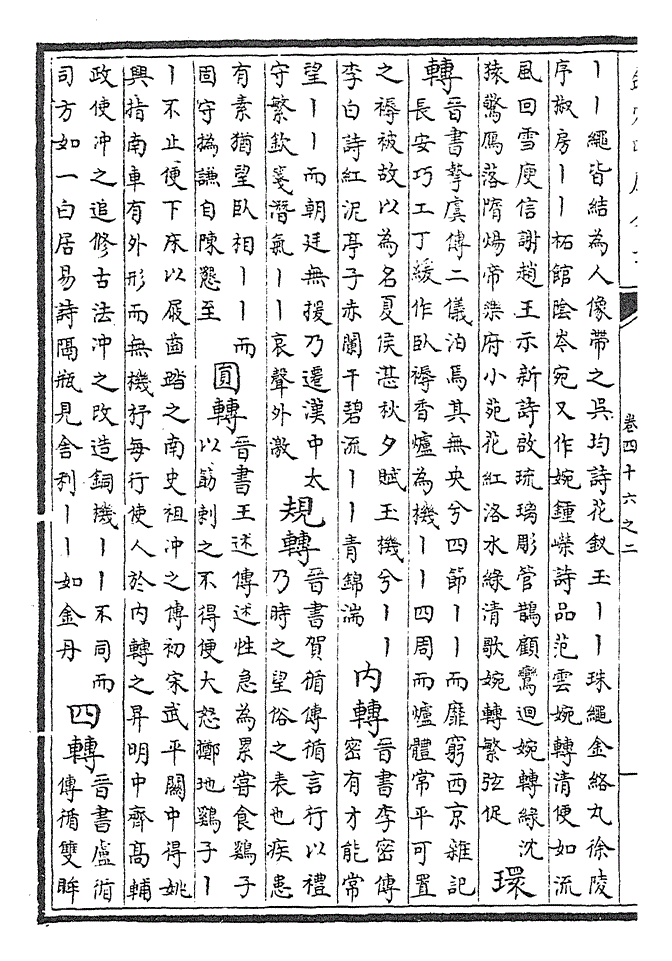 卷四十六之二
一
〡〡繩皆結為人像帶之吳均詩花釵玉〡〡珠繩金絡丸徐陵
序椒房〡〡柘館陰岑宛又作婉鍾嶸詩品范雲婉轉清便如流
風回雪庾信謝趙王示新詩啟琉璃彫管鵲顧鸞迴婉轉綠沈
猿驚鴈落隋煬帝樂府小苑花紅洛水綠清歌婉轉繁弦促
環
轉
晉書摯虞傳二儀泊焉其無央兮四節〡〡而靡窮西京雜記
長安巧工丁緩作臥褥香爐為機〡〡四周而爐體常平可置
之褥被故以為名夏侯湛秋夕賦玉機兮〡〡
李白詩紅泥亭子赤闌干碧流〡〡青錦湍
內轉
晉書李密傳
密有才能常
望〡〡而朝廷無援乃遷漢中太
守繁欽箋潛氣〡〡哀聲外激
規轉
晉書賀循傳循言行以禮
乃時之望俗之表也疾患
有素猶望臥相〡〡而
固守撝謙自陳懇至
圓轉
晉書王述傳述性急為累嘗食鷄子
以筯刺之不得便大怒擲地鷄子〡
〡不止便下床以屐齒踏之南史祖冲之傳初宋武平關中得姚
興指南車有外形而無機杼每行使人於內轉之昇明中齊高輔
政使冲之追修古法冲之改造銅機〡〡不同而
司方如一白居易詩隔瓶見舍利〡〡如金丹
四轉
晉書盧循
傳循雙眸